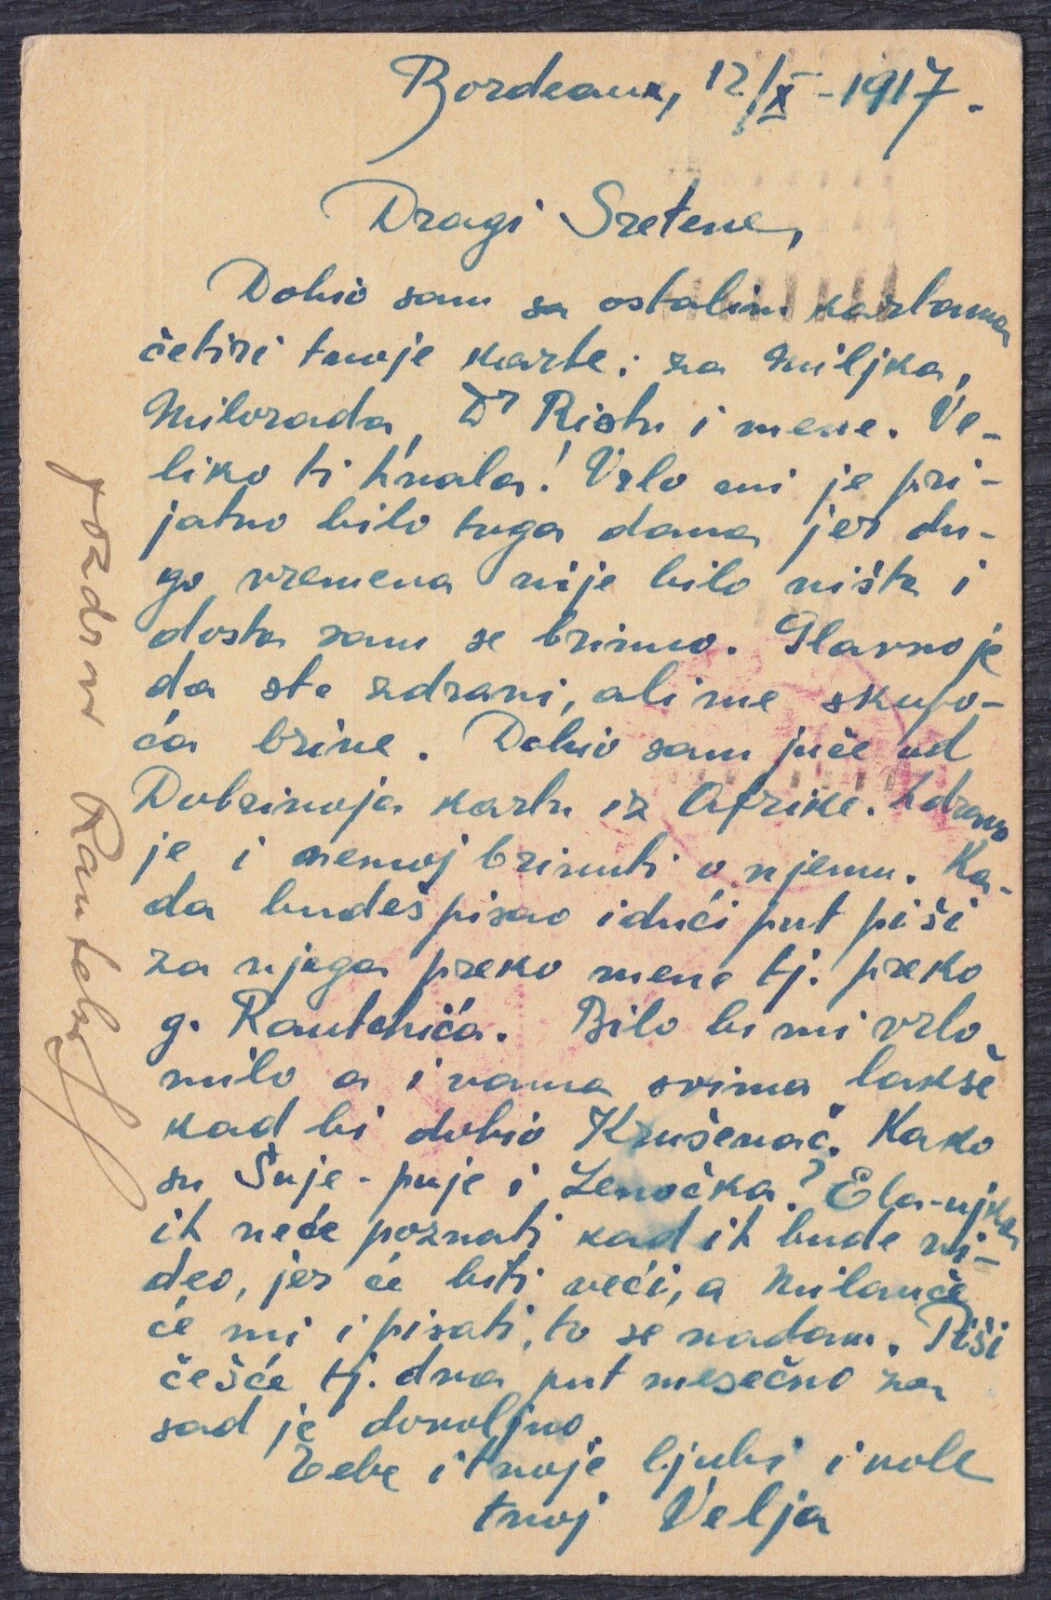 Bordeaux, 12/X - 1917.
Dragi Sretene,
Dobio sam sa ostalim kartama
četiri tvoje karte: za Miljka,
Milorada, Dr Ristu i mene. Ve-
liko ti hvala! Vrlo mi je pri-
jatno bilo toga dana jer du-
go vremena nije bilo ništa i
dosta sam se brinuo. Glavno je
da ste zdravi, ali me skupo-
ća brine. Dobio sam juče od
Dobrivoja kartu iz Afrike. Zdravo
je i nemoj brinuti o njemu. Ka-
da budeš pisao idući put piši
za njega preko mene tj. preko
g. Rautchića. Bilo bi mi vrlo
milo a i vama svima lakše
kad bi dobio Kruševac. Kako
su Šuje-puje i Lenočka? Ela-ujka
ih neće poznati kad ih bude vi-
deo, jer će biti veći, a Milanče
će mi i pisati, to se nadam. Piši
češće tj. dva put mesečno za
sad je dovoljno.
Tebe i tvoje ljubi i vole
tvoj Velja
pozdrav